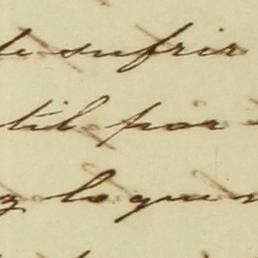 de sufrir
til por
z lo que